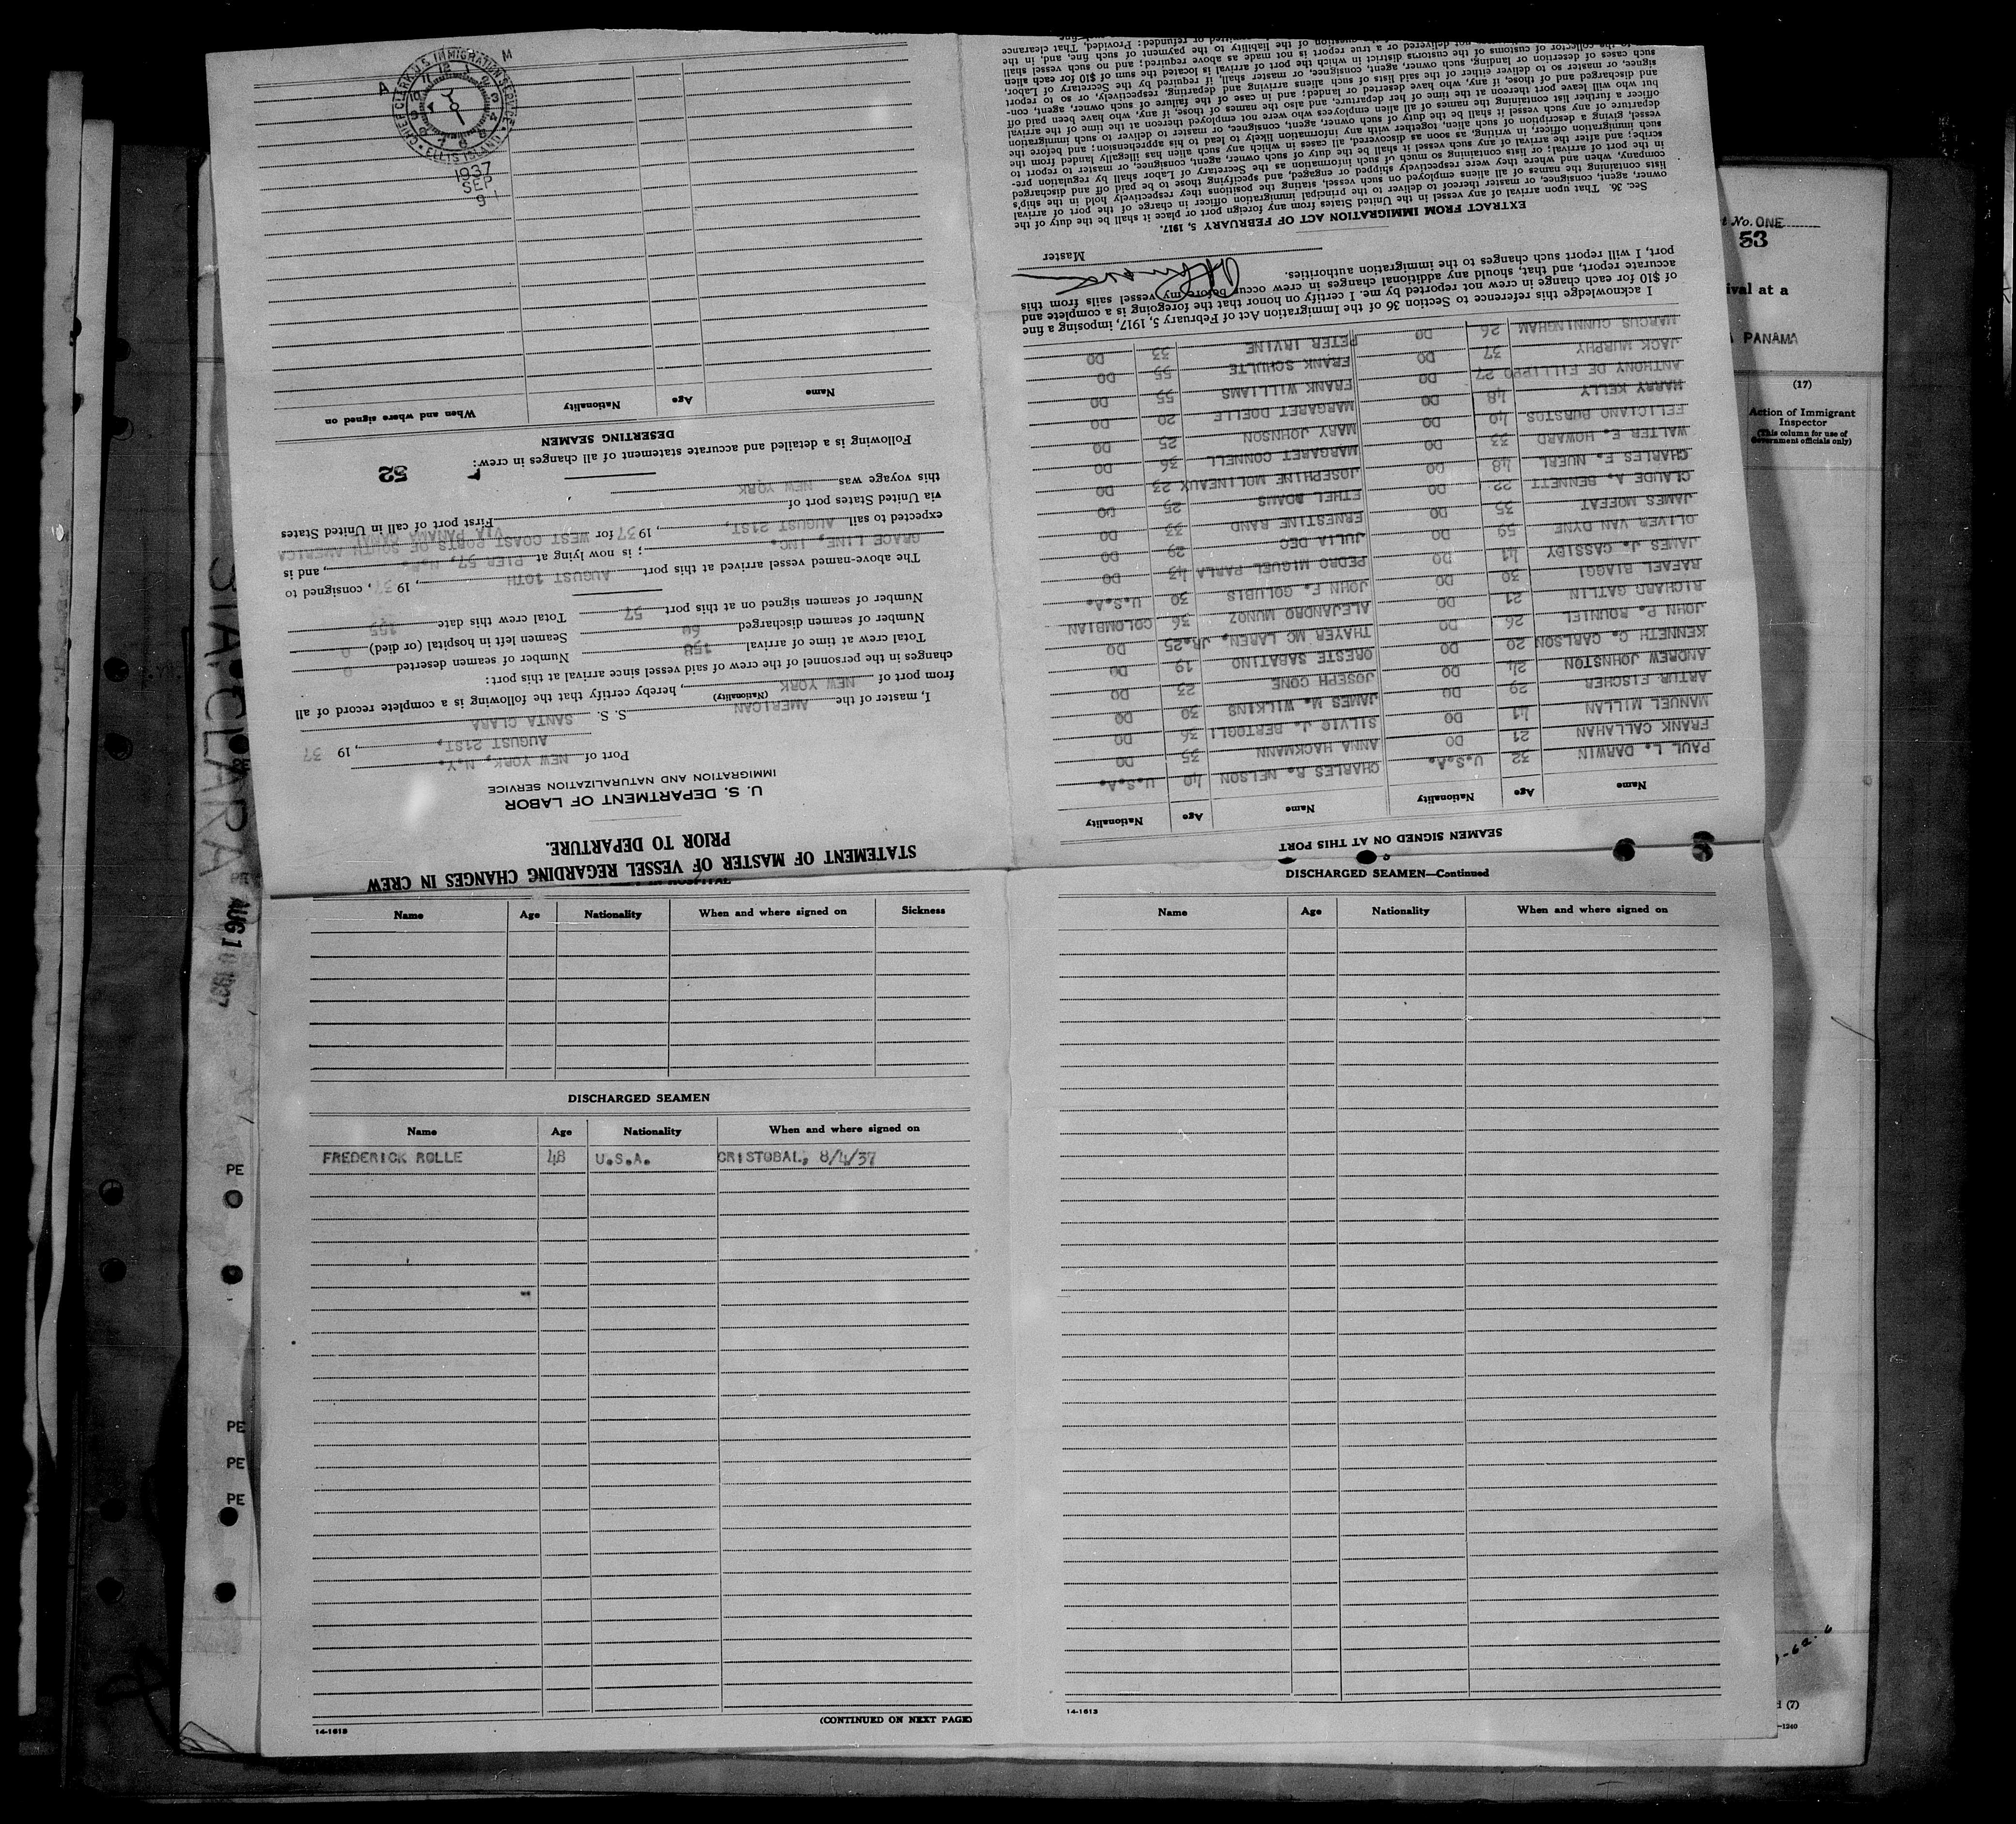 STATEMENT OF MASTER OF VESSEL REGARDING CHANGES IN CREW
PRIOR TO DEPARTURE.
U. S. DEPARTMENT OF LABOR
IMMIGRATION AND NATURALIZATION SERVICE
Port of NEW YORK, N.Y.
AUGUST 21ST, , 19 37
I, master of the AMERICAN S. S. SANTA CLARA
(Nationality)
from port of NEW YORK , hereby certify that the following is a complete record of all
changes in the personnel of the crew of said vessel since arrival at this port:
Total crew at time of arrival 158 Number of seamen deserted 0
Number of seamen discharged 60 Seamen left in hospital (or died) 0
Number of seamen signed on at this port 57 Total crew this date 155
The above-named vessel arrived at this port AUGUST 10TH , 19 37, consigned to
GRACE LINE, INC. ; is now lying at PIER 57, N.R. , and is
expected to sail AUGUST 21ST, , 1937 for WEST COAST PORTS OF SOUTH AMERICA
VIA PANAMA
via United States port of First port of call in United States
this voyage was NEW YORK
52
Following is a detailed and accurate statement of all changes in crew:
DESERTING SEAMEN
Name Age Nationality When and where signed on
CHIEF CLERK U.S. IMMIGRATION SERVICE
ELLIS ISLAND
1937
SEP
9
A M
SEAMEN SIGNED ON AT THIS PORT
Name Age Nationality Name Age Nationality
PAUL L. DARWIN 32 U.S.A. CHARLES R. NELSON 40 U.S.A.
FRANK CALLAHAN 21 DO ANNA HACKMANN 35 DO
MANUEL MILLAN 41 DO SILVIO J. BERTOGLI 36 DO
ARTUR FISCHER 29 DO JAMES M. WILKINS 30 DO
ANDREW JOHNSTON 24 DO JOSEPH CONE 23 DO
KENNETH C. CARLSON 20 DO ORESTE SABATINO 19 DO
JOHN P. ROUNIEL 26 DO THAYER MC LAREN, JR. 25 DO
RICHARD GATLIN 21 DO ALEJANDRO MUNOZ 36 COLOMBIAN
RAFAEL BIAGGI 30 DO JOHN F. GOLUBIS 30 U.S.A.
JAMES J. CASSIDY 41 DO PEDRO MIGUEL PARLA 43 DO
OLIVER VAN DYNE 59 DO JULIA DEC 29 DO
JAMES MOFFAT 35 DO ERNESTINE RAND 33 DO
CLAUDE A. BENNETT 22 DO ETHEL ADAMS 25 DO
CHARLES F. NUERL 48 DO JOSEPHINE MOLINEAUX 23 DO
WALTER E. HOWARD 33 DO MARGARET CONNELL 36 DO
FELICIANO BURSTOS 40 DO MARY JOHNSON 25 DO
HARRY KELLY 48 DO MARGARET DOELLE 20 DO
ANTHONY DE FILLIPPO 27 DO FRANK WILLIAMS 55 DO
JACK MURPHY 37 DO FRANK SCHULTE 55 DO
MARCUS CUNNINGHAM 26 DO PETER IRVINE 33 DO
I acknowledge this reference to Section 36 of the Immigration Act of February 5, 1917, imposing a fine
of $10 for each change in crew not reported by me. I certify on honor that the foregoing is a complete and
accurate report, and that, should any additional changes in crew occur before my vessel sails from this
port, I will report such changes to the immigration authorities.
Master
EXTRACT FROM IMMIGRATION ACT OF FEBRUARY 5, 1917.
Sec. 36. That upon arrival of any vessel in the United States from any foreign port or place it shall be the duty of the
owner, agent, consignee, or master thereof to deliver to the principal immigration officer in charge of the port of arrival
lists containing the names of all aliens employed on such vessel, stating the positions they respectively hold in the ship's
company, when and where they were respectively shipped or engaged, and specifying those to be paid off and discharged
in the port of arrival; or lists containing so much of such information as the Secretary of Labor shall by regulation pre-
scribe; and after the arrival of any such vessel it shall be the duty of such owner, agent, consignee, or master to report to
such immigration officer, in writing, as soon as discovered, all cases in which any such alien has illegally landed from the
vessel, giving a description of such alien, together with any information likely to lead to his apprehension; and before the
departure of any such vessel it shall be the duty of such owner, agent, consignee, or master to deliver to such immigration
officer a further list containing the names of all alien employees who were not employed thereon at the time of the arrival
but who will leave port thereon at the time of her departure, and also the names of those, if any, who have been paid off
and discharged and of those, if any, who have deserted or landed; and in case of the failure of such owner, agent, con-
signee, or master so to deliver either of the said lists of such aliens arriving and departing, respectively, or so to report
such cases of desertion or landing, such owner, agent, consignee, or master shall, if required by the Secretary of Labor,
pay to the collector of customs of the customs district in which the port of arrival is located the sum of $10 for each alien
not delivered or a true report is not made as above required; and no such vessel shall
question of the liability to the payment of such fine, and, in the
remitted or refunded: Provided, That clearance
Name Age Nationality When and where signed on Sickness
DISCHARGED SEAMEN
Name Age Nationality When and where signed on
FREDERICK ROLLE 48 U.S.A. CRISTOBAL, 8/4/37
14-1613
(CONTINUED ON NEXT PAGE)
DISCHARGED SEAMEN—Continued
Name Age Nationality When and where signed on
14-1613
t No. ONE
53
ival at a
PANAMA
(17)
Action of Immigrant
Inspector
(This column for use of
Government officials only)
d (7)
-1240
STA CLARA
AUG 10 1937
PE
PE
PE
PE